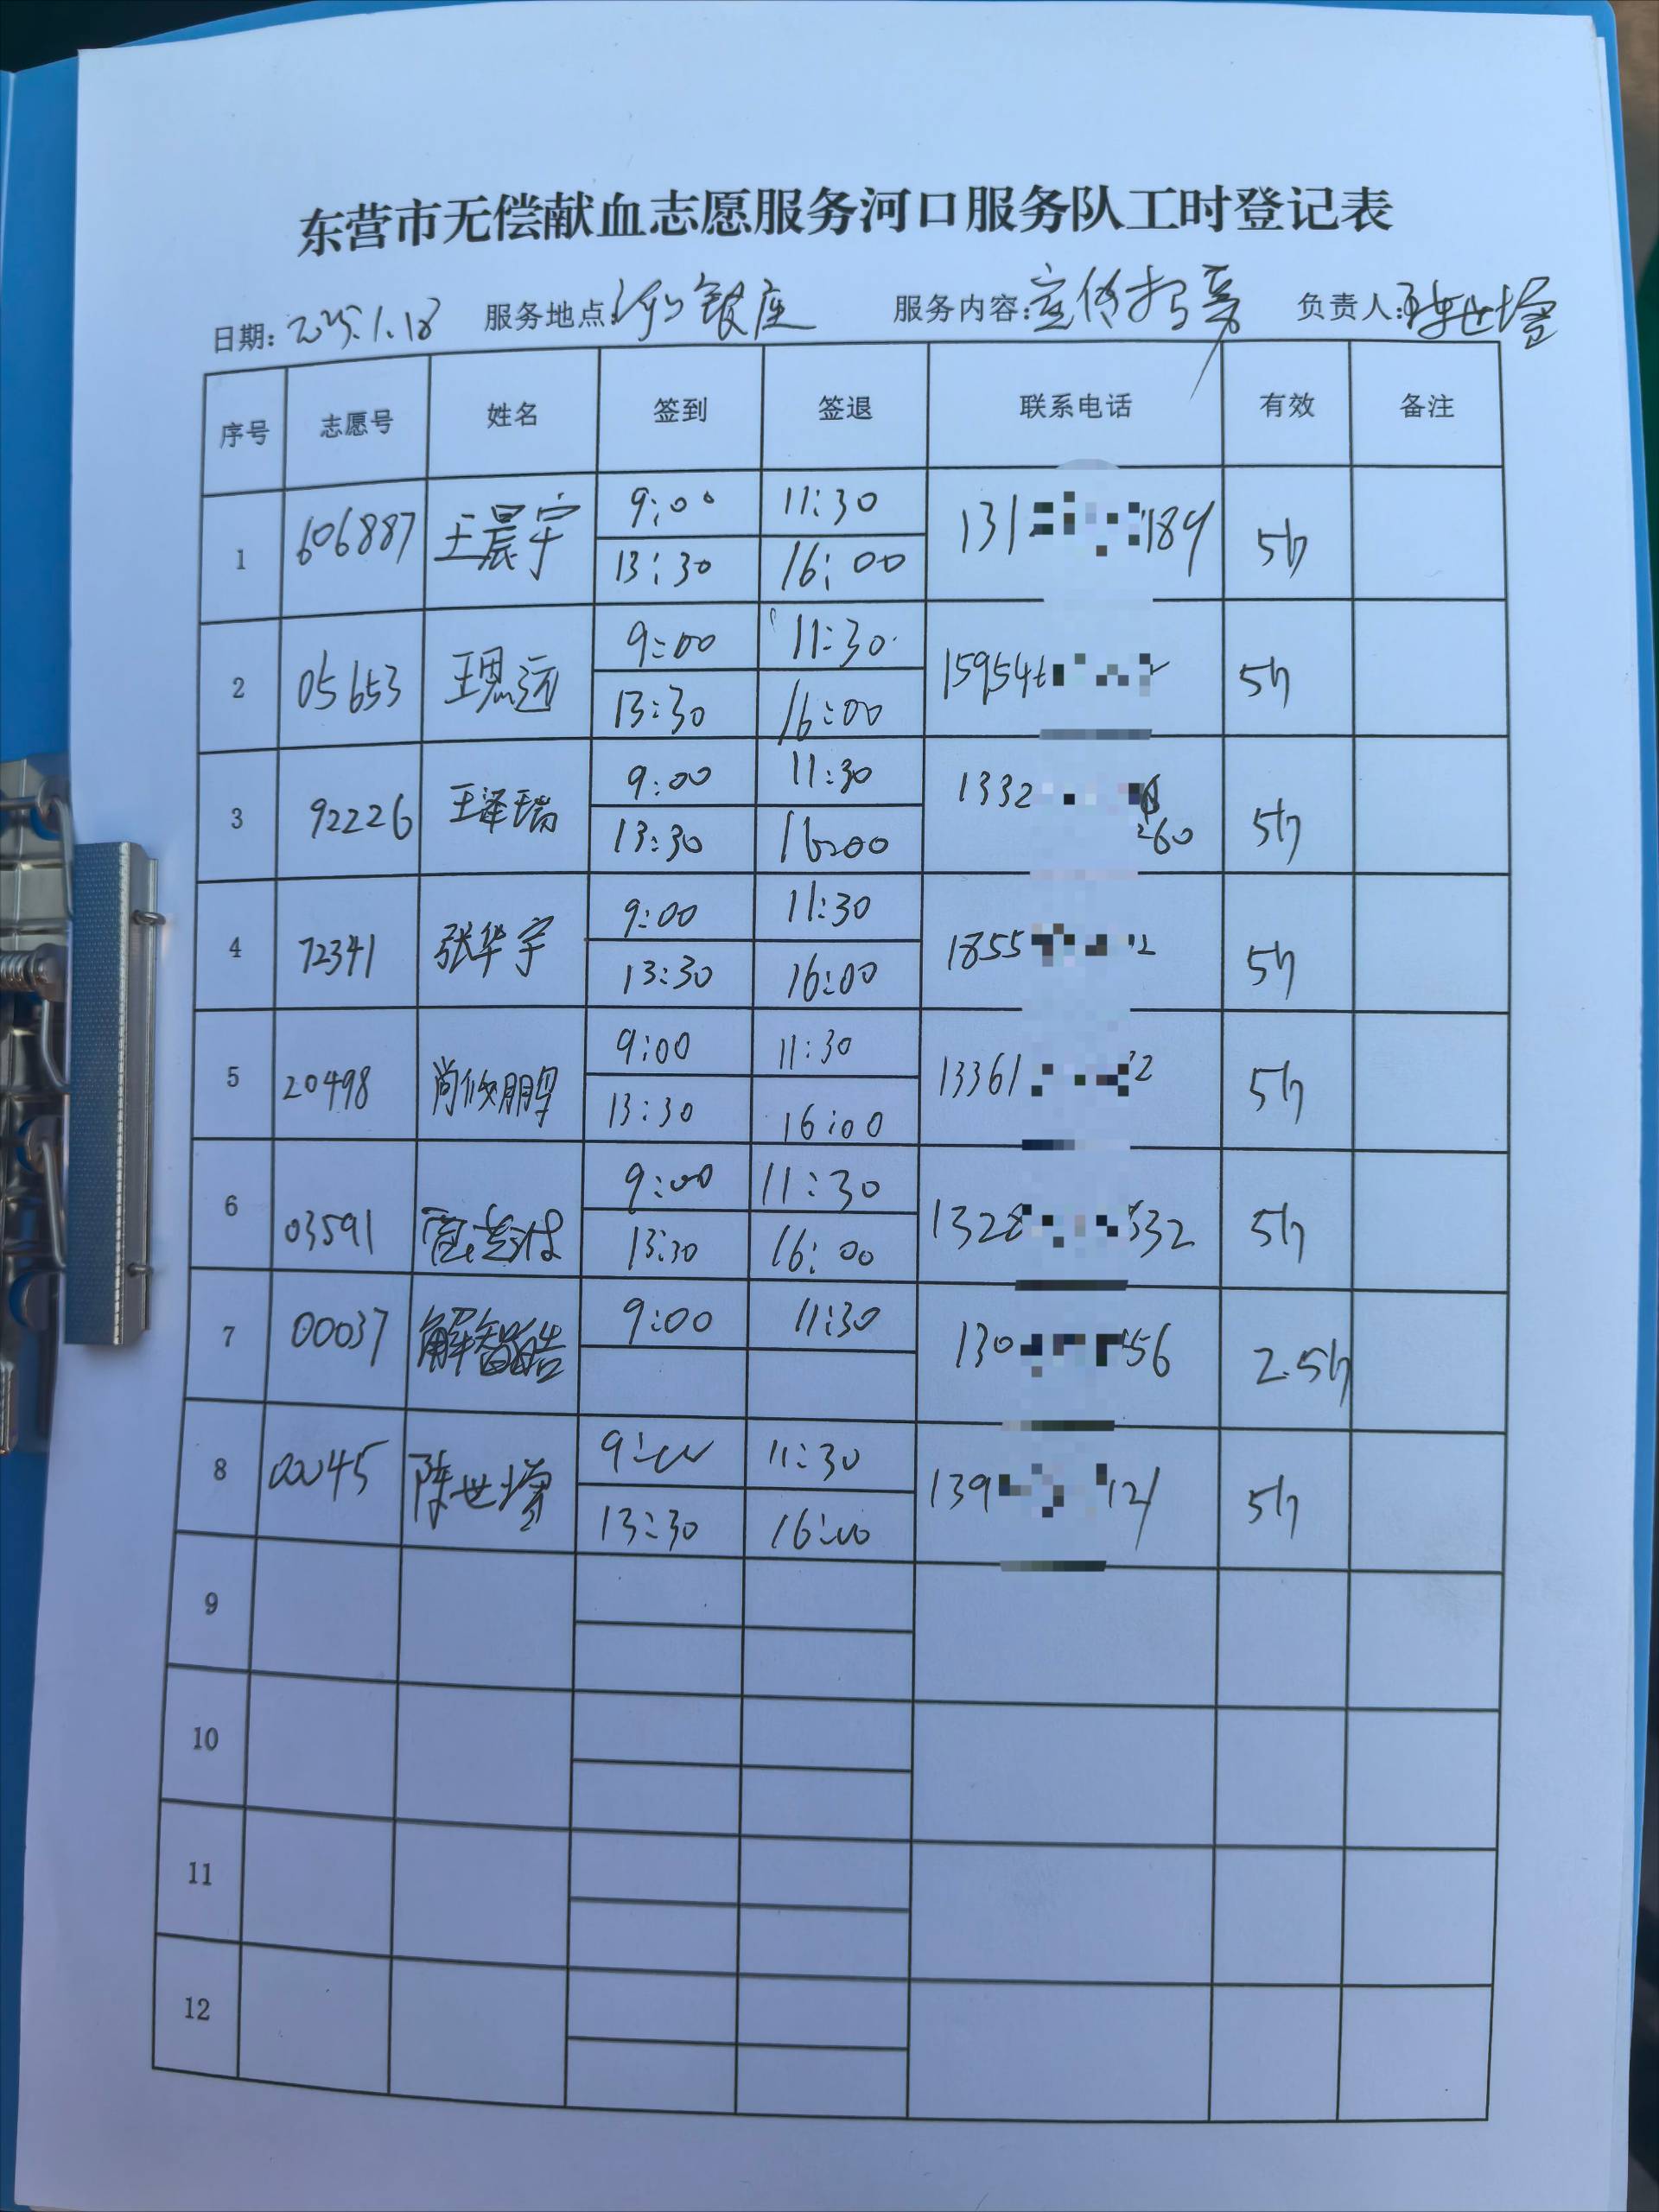 东营市无偿献血志愿服务河口服务队工时登记表
日期: 2025.1.18 服务地点: 河口银座 服务内容: 宣传招募 负责人: 陈世增
序号 志愿号 姓名 签到 签退 联系电话 有效 备注
1 606887 王晨宇 9:00 11:30 131 189 5h
13:30 16:00
2 05653 王思远 9:00 11:30 15954 5h
13:30 16:00
3 92226 王泽瑞 9:00 11:30 1332 260 5h
13:30 16:00
4 72341 张华宇 9:00 11:30 1855 2 5h
13:30 16:00
5 20498 尚 9:00 11:30 13361 2 5h
13:30 16:00
6 03591 9:00 11:30 1328 532 5h
13:30 16:00
7 00037 解智皓 9:00 11:30 130 56 2.5h
8 00045 陈世增 9:00 11:30 139 121 5h
13:30 16:00
9
10
11
12